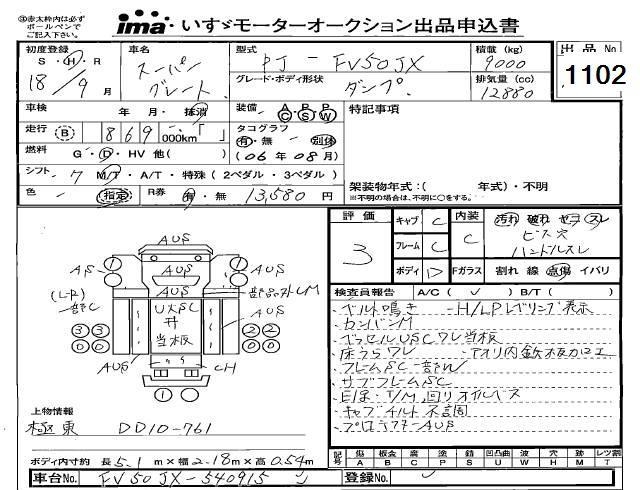 ㊟赤太枠内は必ず
ボールペンで
ご記入下さい。
ima いすゞモーターオークション出品申込書
初度登録 車名 型式 積載 (kg) 出品No
S・H・R スーパー PJ-FV50JX 9000 1102
18年 9月 グレート グレード・ボディ形状 ダンプ 排気量 (cc) 12880
車検 年・月・抹消 装備 A/C P/S P/W 特記事項
走行 (B) 869,000km「 」 タコグラフ 有・無 別体
燃料 G・D・HV 他( ) (06年08月)
シフト 7 M/T・A/T・特殊(2ペダル・3ペダル)
色 - (指定) R券 有・無 13,580円
架装物年式:( 年式)・不明
※不明の場合は、不明に○をする。
評価 3 キャブ C 内装 C 汚れ 破れ ヤラ スレ
フレーム C ビス穴
ハンドルスレ
ボディ D Fガラス 割れ 線 点傷 イバリ
検査員報告 A/C(✓) B/T( )
ベルト鳴き -H/LPレベリング表示
カンバンM
ベッセルUSCワレ当板
床うらワレ -アオリ内鉄板加工
フレームSC一部W
サブフレームSC
E/床・T/M回りオイルベス
キャブチルト不調
プロペラAUS
AUS
AUS
AUS
AUS
(L-R)
一部C
UスSC
当板
AUS
AUS
CH
上物情報
極東 DD10-761
ボディ内寸約 長5.1m×幅2.18m×高0.54m
記号 傷 板金 腐 塗 錆 凹凸曲 波 穴 跡 レツ割
A B C P S U W H M T
車台No. FV50JX-540915 登録No.